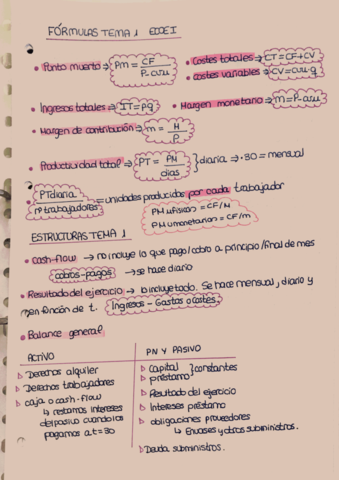 FÓRMULAS TEMA 1 EOEI
• Punto muerto → PM = CF / P-cvu
• Costes totales → CT = CF + CV
• costes variables → CV = cvu·q
• Ingresos totales → IT = pq
• Margen monetario → m = P-cvu
• Margen de contribución → m = M / P
• Productividad total → PT = PM / dias } diaria → ·30 = mensual
PT diaria / nº trabajadores = unidades producidas por cada trabajador
PM ufísicas = CF/M
PM umonetarias = CF/m
ESTRUCTURAS TEMA 1
• cash-flow → no incluye lo que pago/cobro a principio/final de mes
cobros-pagos → se hace diario
• Resultado del ejercicio → lo incluye todo. Se hace mensual, diario y
en función de t. Ingresos - Gastos o costes.
• Balance general
ACTIVO
▷ Derechos alquiler
▷ Derechos trabajadores
▷ caja o cash-flow
↳ restamos intereses
del pasivo cuando los
pagamos a t=30
PN Y PASIVO
▷ capital } constantes
▷ préstamo
▷ Resultado del ejercicio
▷ Intereses préstamo
▷ obligaciones proveedores
↳ Envases y otros suministros.
▷ Deuda suministros.